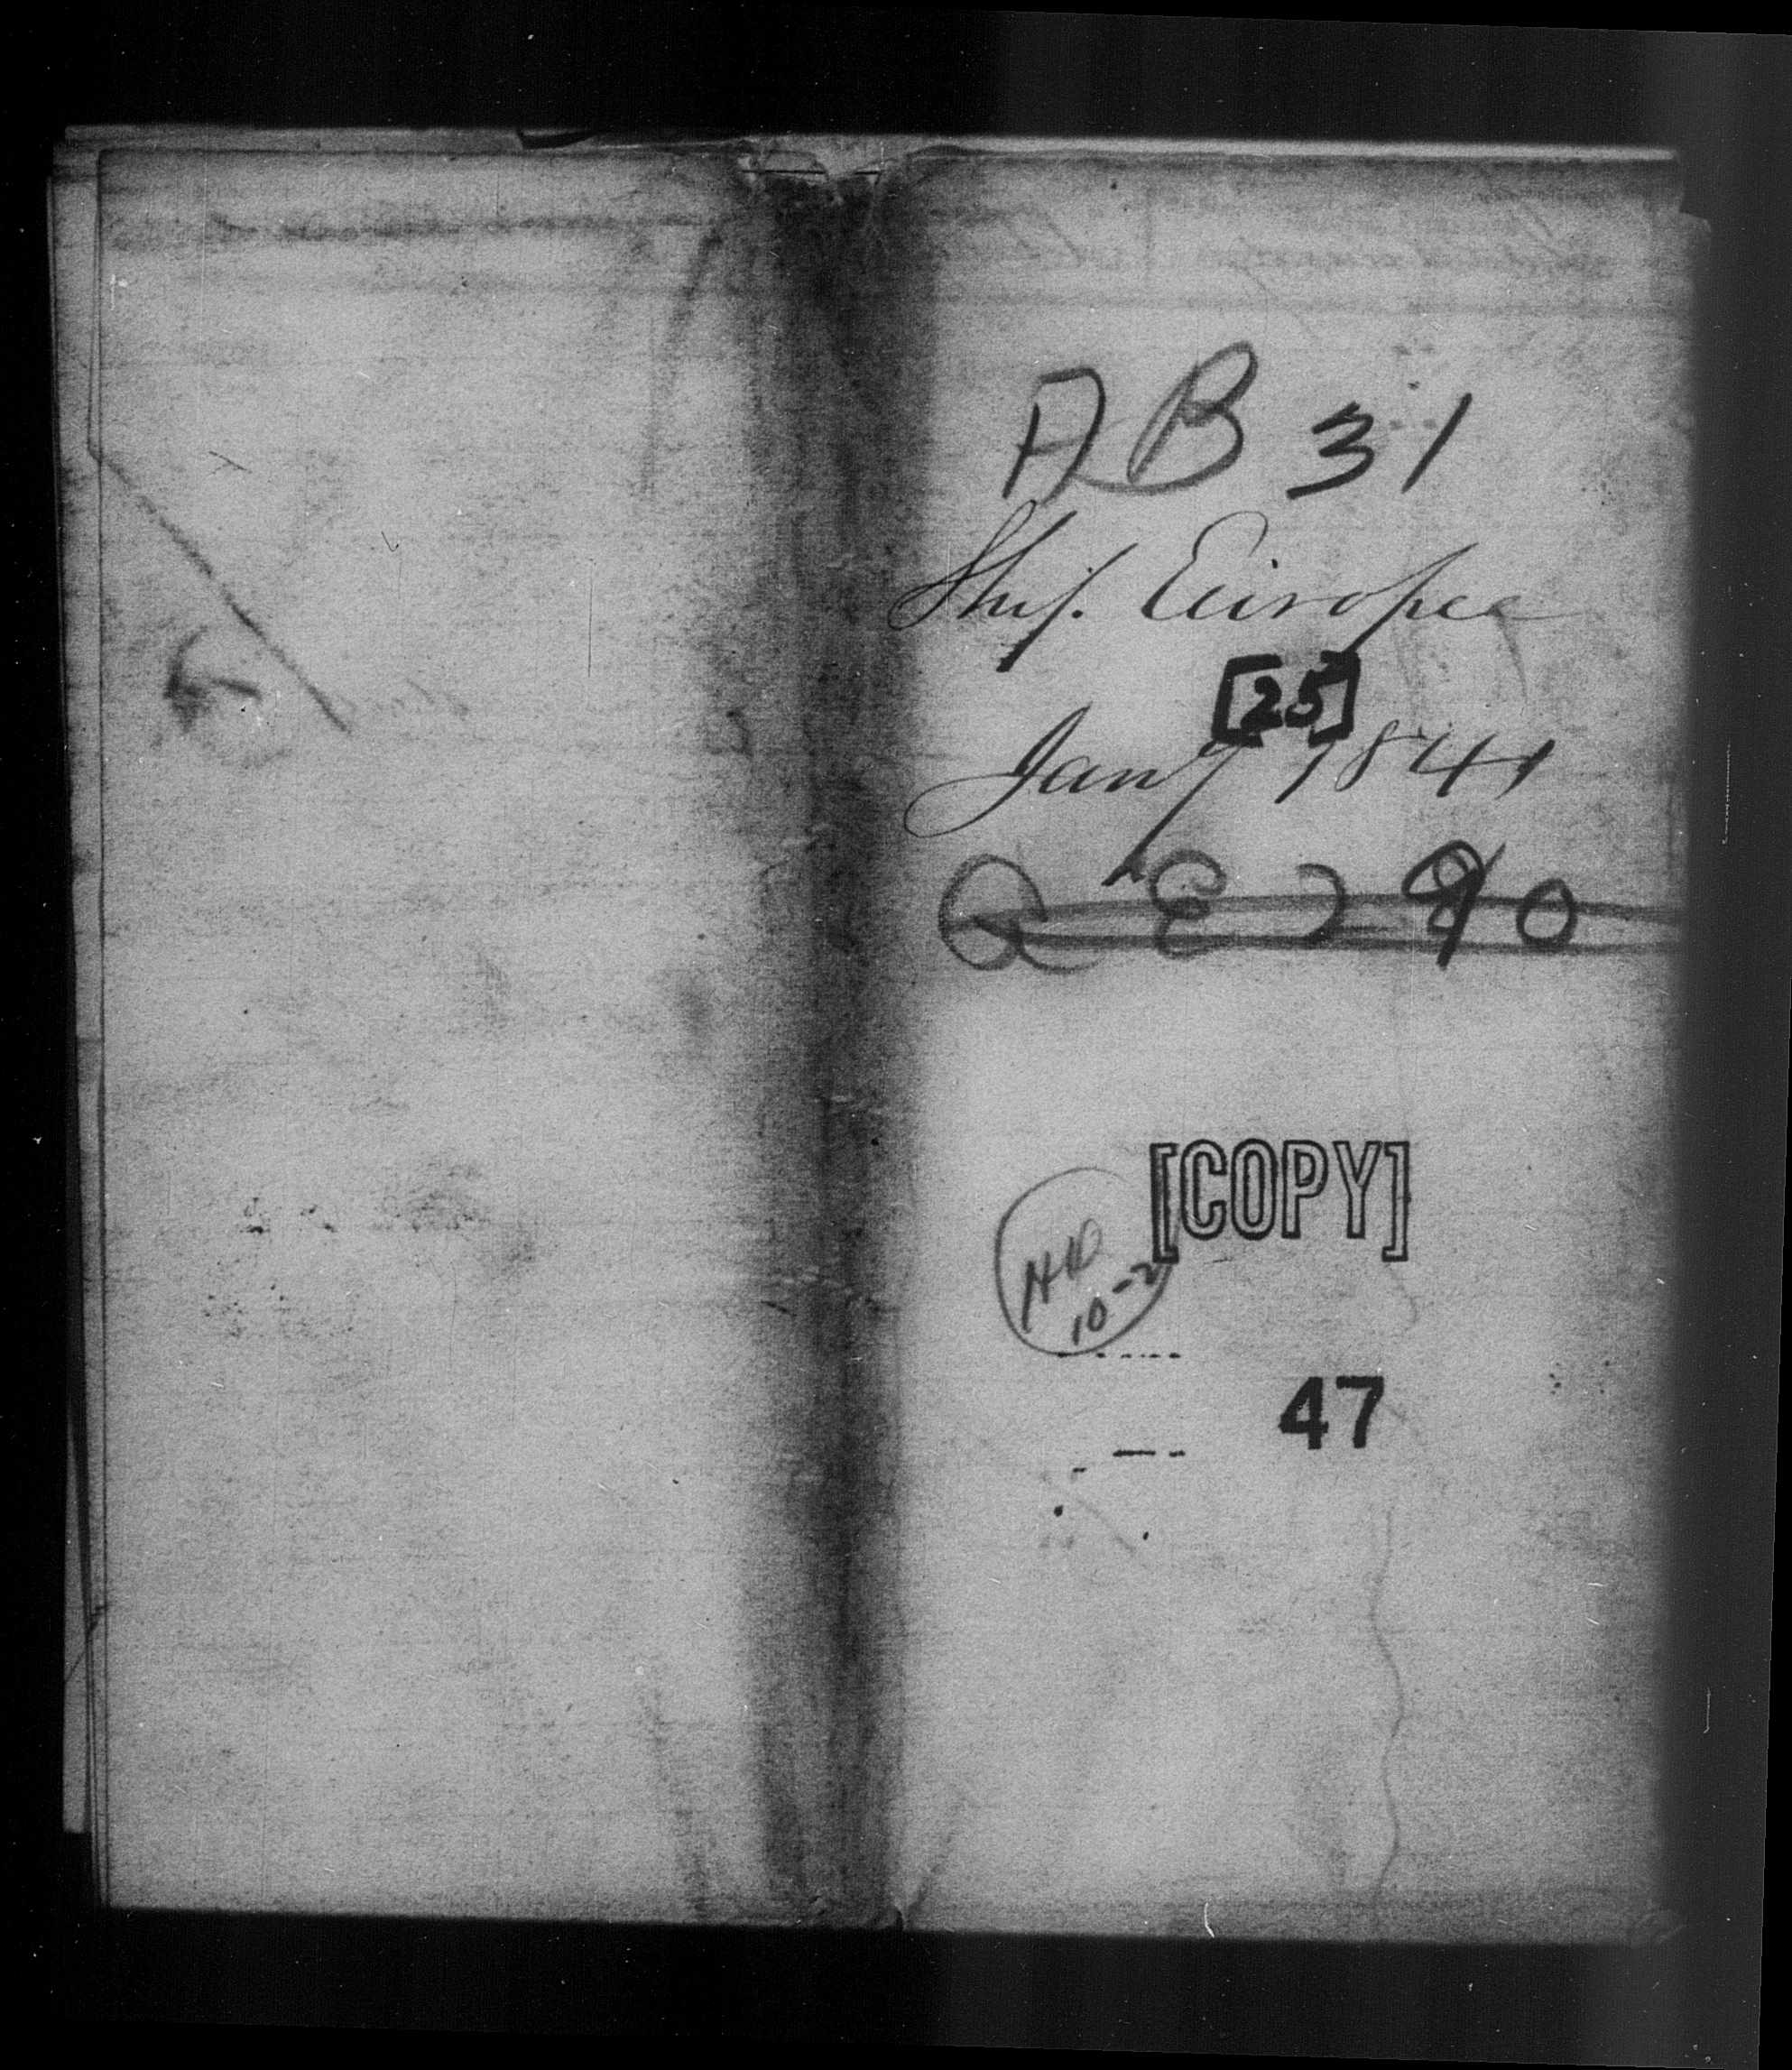 AB 31
Ship. Europea
[25]
Jany 1841
[COPY]
10-2
47